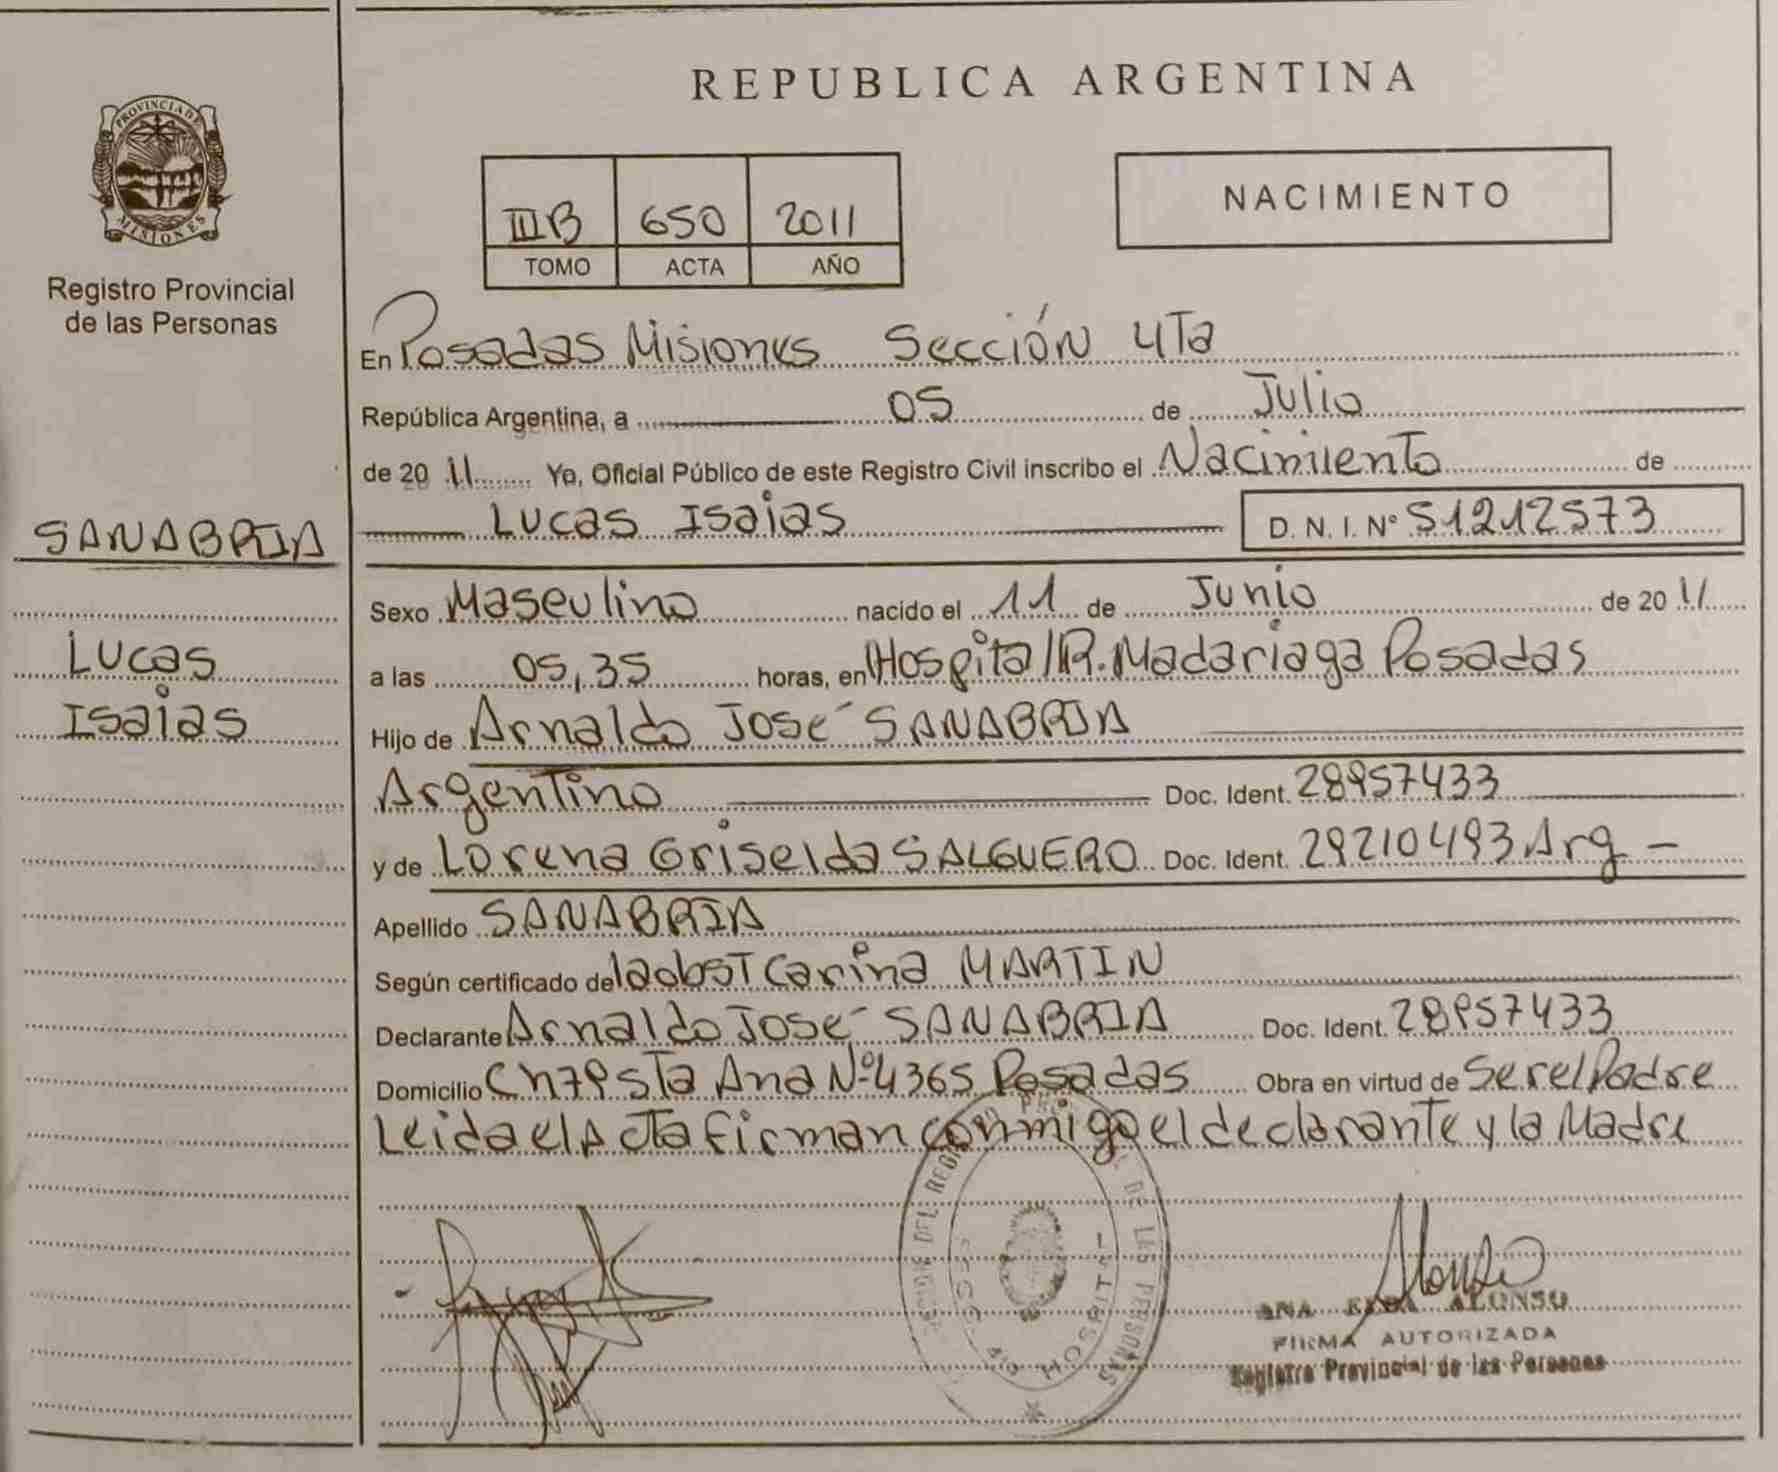 PROVINCIA DE
MISIONES
Registro Provincial
de las Personas
SANABRIA
Lucas
Isaias
REPUBLICA ARGENTINA
III B 650 2011
TOMO ACTA AÑO
NACIMIENTO
En Posadas Misiones Sección 4Ta
República Argentina, a 05 de Julio
de 2011 Yo, Oficial Público de este Registro Civil inscribo el Nacimiento de
Lucas Isaias D. N. I. N° 51212573
Sexo Masculino nacido el 11 de Junio de 2011
a las 05,35 horas, en Hospital R. Madariaga Posadas
Hijo de Arnaldo José SANABRIA
Argentino Doc. Ident. 28957433
y de Lorena Griselda SALGUERO Doc. Ident. 29210493 Arg -
Apellido SANABRIA
Según certificado de la obst Carina MARTIN
Declarante Arnaldo José SANABRIA Doc. Ident. 28957433
Domicilio Ch 79 Sta Ana Nº 4365 Posadas Obra en virtud de Ser el Padre
Leida el Acta firman conmigo el declarante y la Madre
DEL REGISTRO DE LAS PERSONAS
HOSPITAL
ANA ALONSO
FIRMA AUTORIZADA
Registro Provincial de las Personas